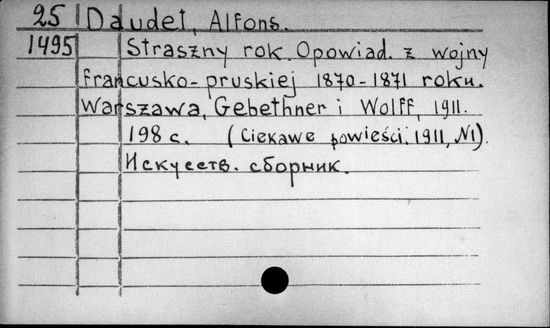 25 Daudet, Alfons.
1495 Straszny rok. Opowiad. z wojny
francusko-pruskiej 1870-1871 roku.
Warszawa, Gebethner i Wolff, 1911.
198 c. (Ciekawe powieści. 1911, N1).
Искусств. сборник.